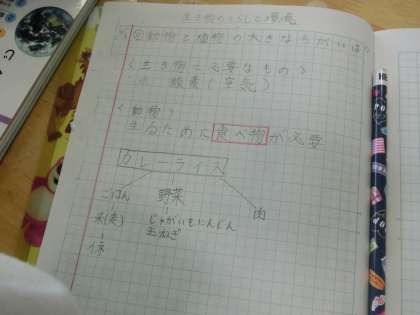 生き物のくらしと環境
動物と植物の大きなちがいは?
<生き物に必要なもの>
水 酸素(空気)
<動物>
生きるために食べ物が必要
カレーライス
ごはん 野菜 肉
米(麦) じゃがいもにんじん
玉ねぎ